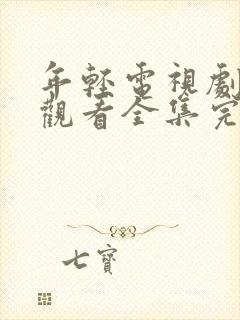 年輕電視劇
觀看全集完
七寶